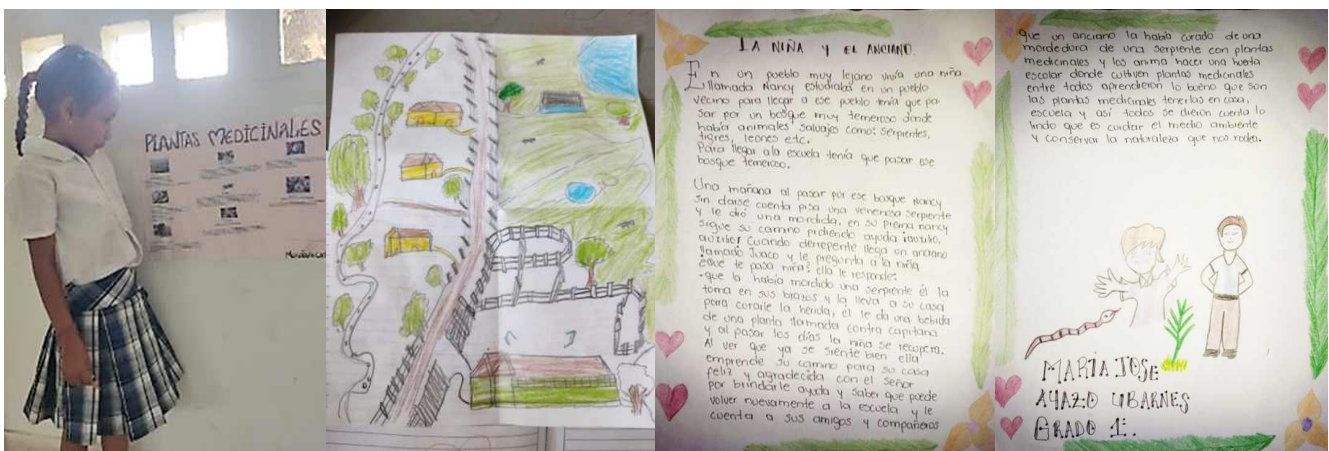 PLANTAS MEDICINALES
LA NIÑA Y EL ANCIANO.
En un pueblo muy lejano vivía una niña
llamada Nancy estudiaba en un pueblo
vecino para llegar a ese pueblo tenía que pa
sar por un bosque muy temeroso donde
había animales salvajes como: serpientes,
tigres, leones etc.
Para llegar ala escuela tenía que pasar ese
bosque temeroso.
Una mañana al pasar por ese bosque Nancy
sin darse cuenta pisa una venenosa serpiente
y le dió una mordida, en su pierna nancy
sigue su camino pidiendo ayuda ¡auxilio,
auxilio! Cuando derrepente llega un anciano
llamado Juaco y le pregunta a la niña
¿que te pasa niña? ella le responde:
-que la había mordido una serpiente él la
toma en sus brazos y la lleva a su casa
para curarle la herida, él le da una bebida
de una planta llamada contra capitana
y al pasar los días la niña se recupera.
Al ver que ya se siente bien ella
emprende su camino para su casa
feliz y agradecida con el Señor
por brindarle ayuda y saber que puede
volver nuevamente a la escuela y le
cuenta a sus amigos y compañeros
que un anciano la había curado de una
mordedura de una serpiente con plantas
medicinales y los anima hacer una huerta
escolar donde cultiven plantas medicinales
entre todos aprendieron lo bueno que son
las plantas medicinales tenerlas en casa,
escuela y así todos se dieron cuenta lo
lindo que es cuidar el medio ambiente
y conservar la naturaleza que nos rodea.
MARIA JOSE
AYAZO UBARNES
GRADO 1º.